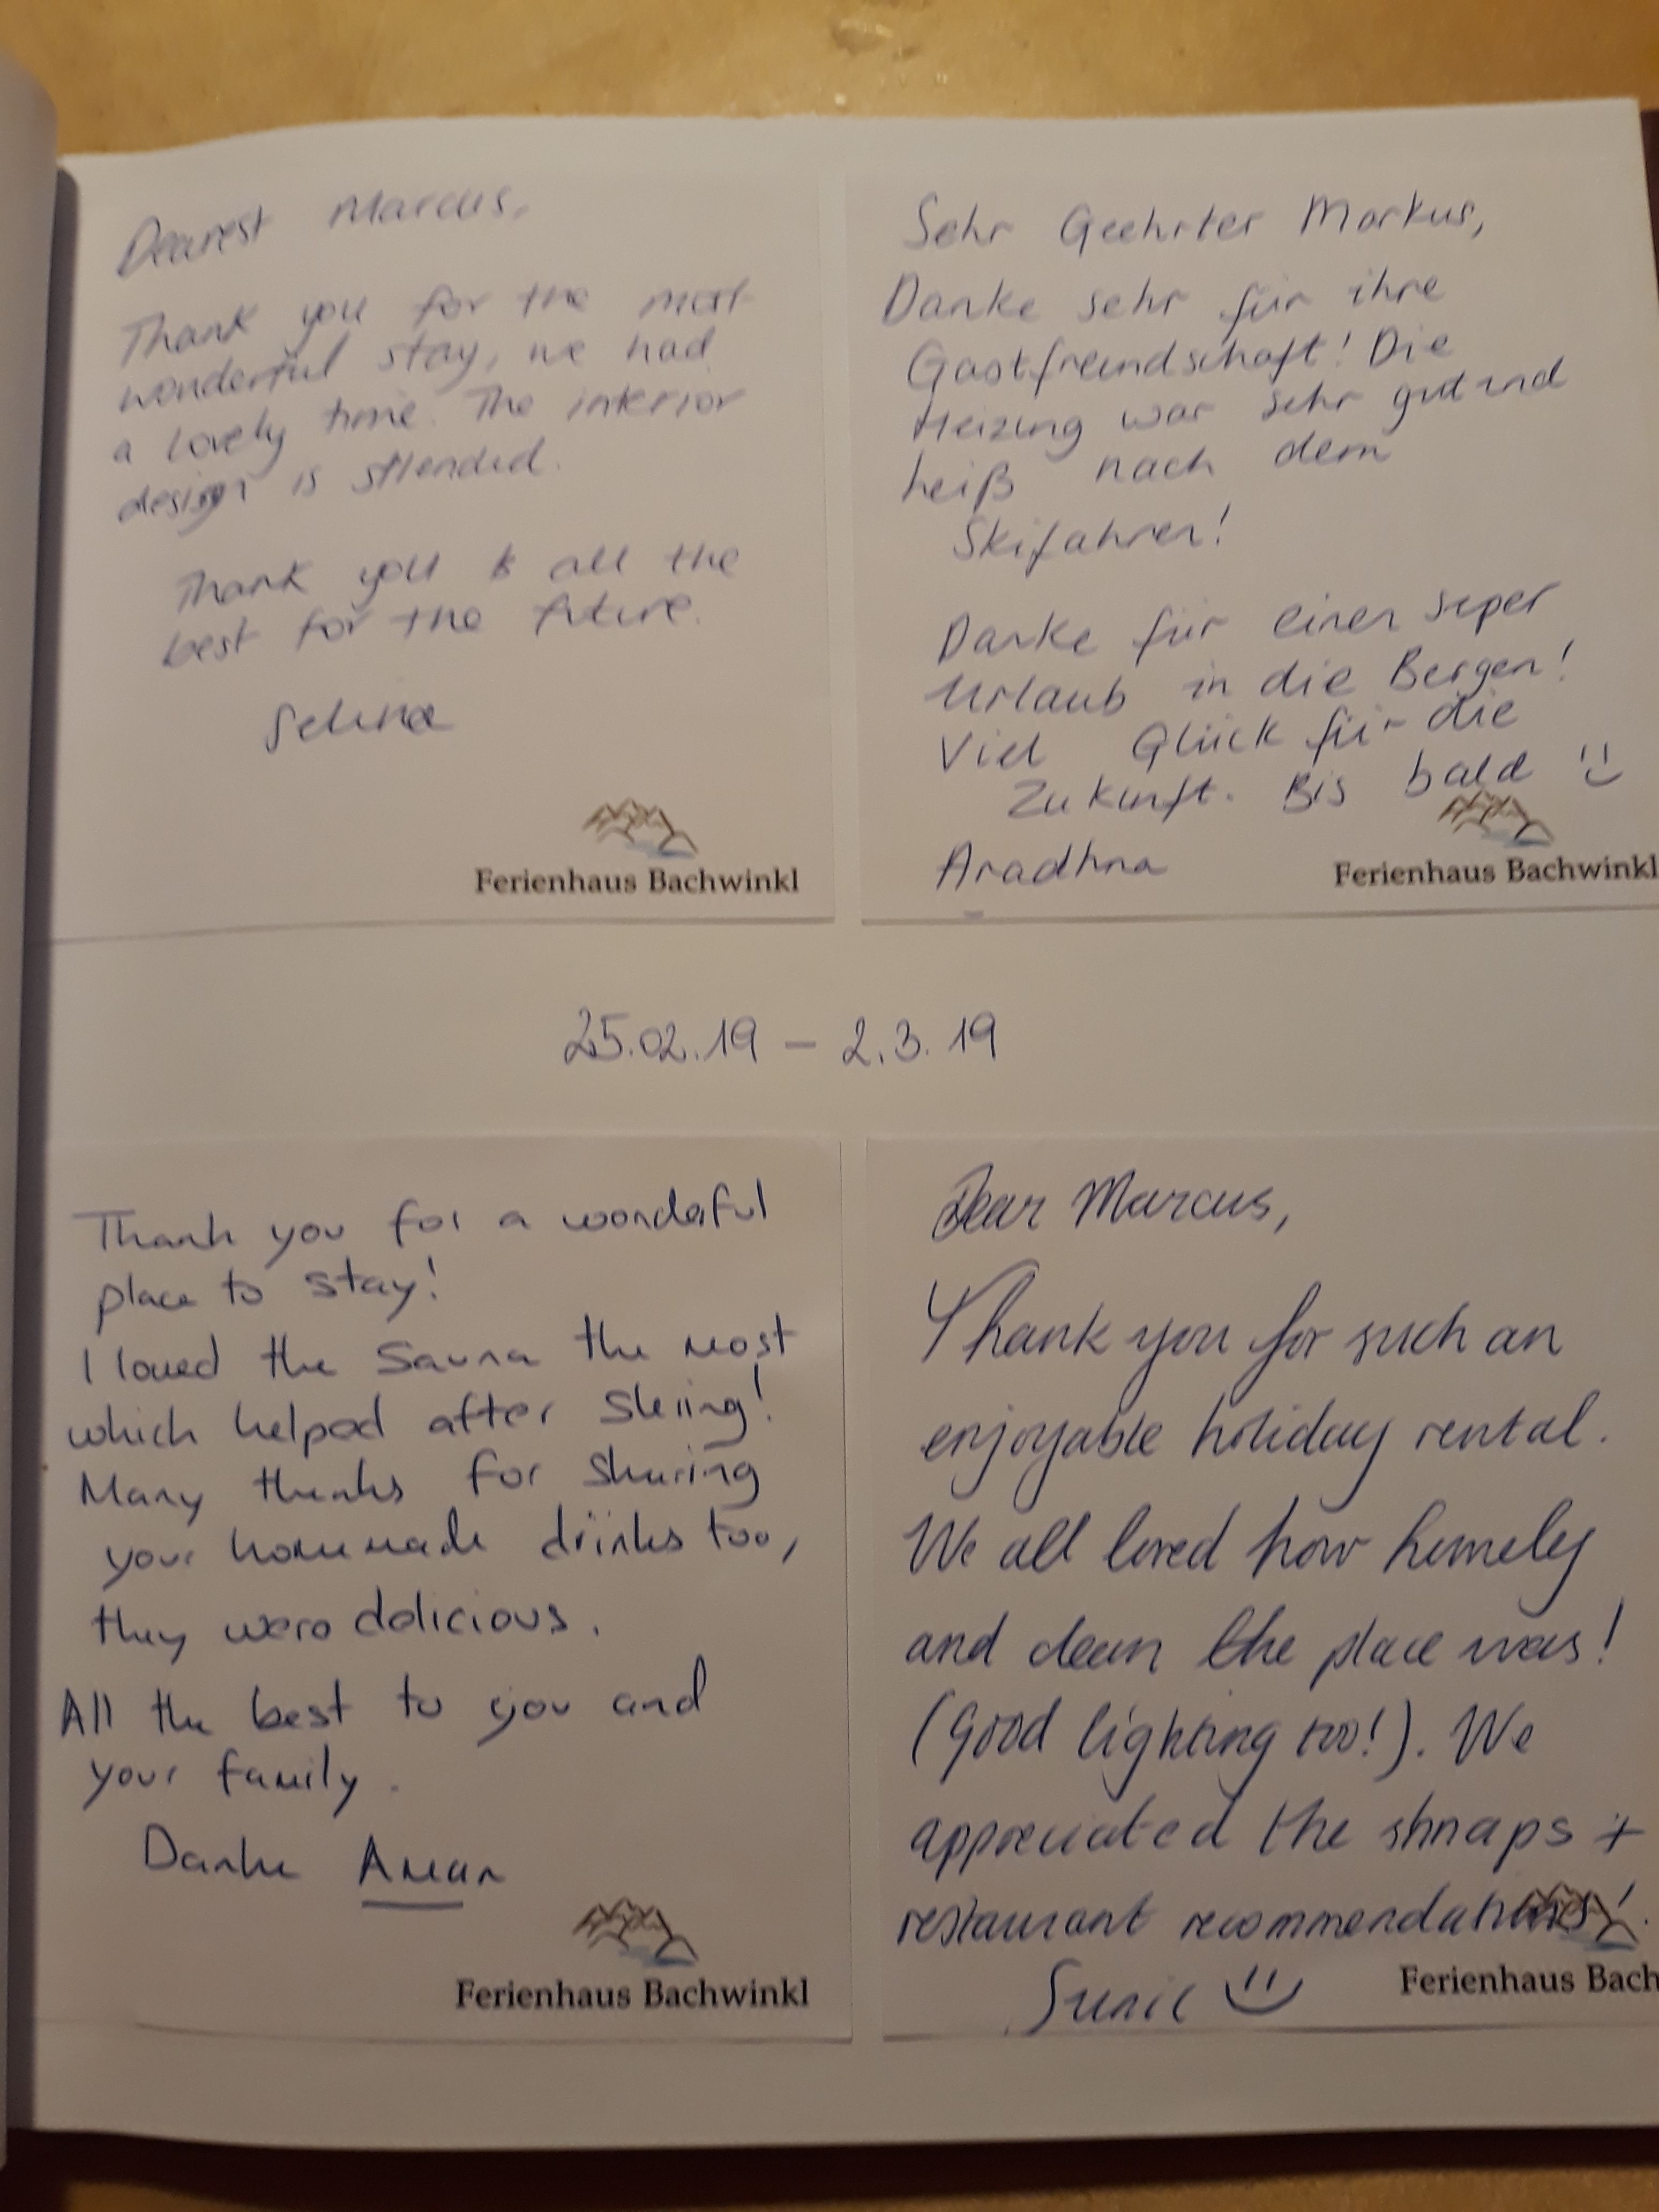 Dearest Marcus,
Thank you for the most
wonderful stay, we had
a lovely time. The interior
design is splended.
Thank you & all the
best for the future.
Selina
Ferienhaus Bachwinkl
Sehr Geehrter Markus,
Danke sehr für ihre
Gastfreundschaft! Die
Heizung war sehr gut und
heiß nach dem
Skifahren!
Danke für einen super
Urlaub in die Bergen!
Viel Glück für die
Zukunft. Bis bald
Aradhna
Ferienhaus Bachwinkl
25.02.19 – 2.3.19
Thank you for a wonderful
place to stay!
I loved the Sauna the most
which helped after Skiing!
Many thanks for sharing
your homemade drinks too,
they were delicious.
All the best to you and
your family.
Danke Aman
Ferienhaus Bachwinkl
Dear Marcus,
Thank you for such an
enjoyable holiday rental.
We all loved how homely
and clean the place was!
(Good lighting too!). We
appreciated the shnaps +
restaurant recommendations!
Sunil
Ferienhaus Bach